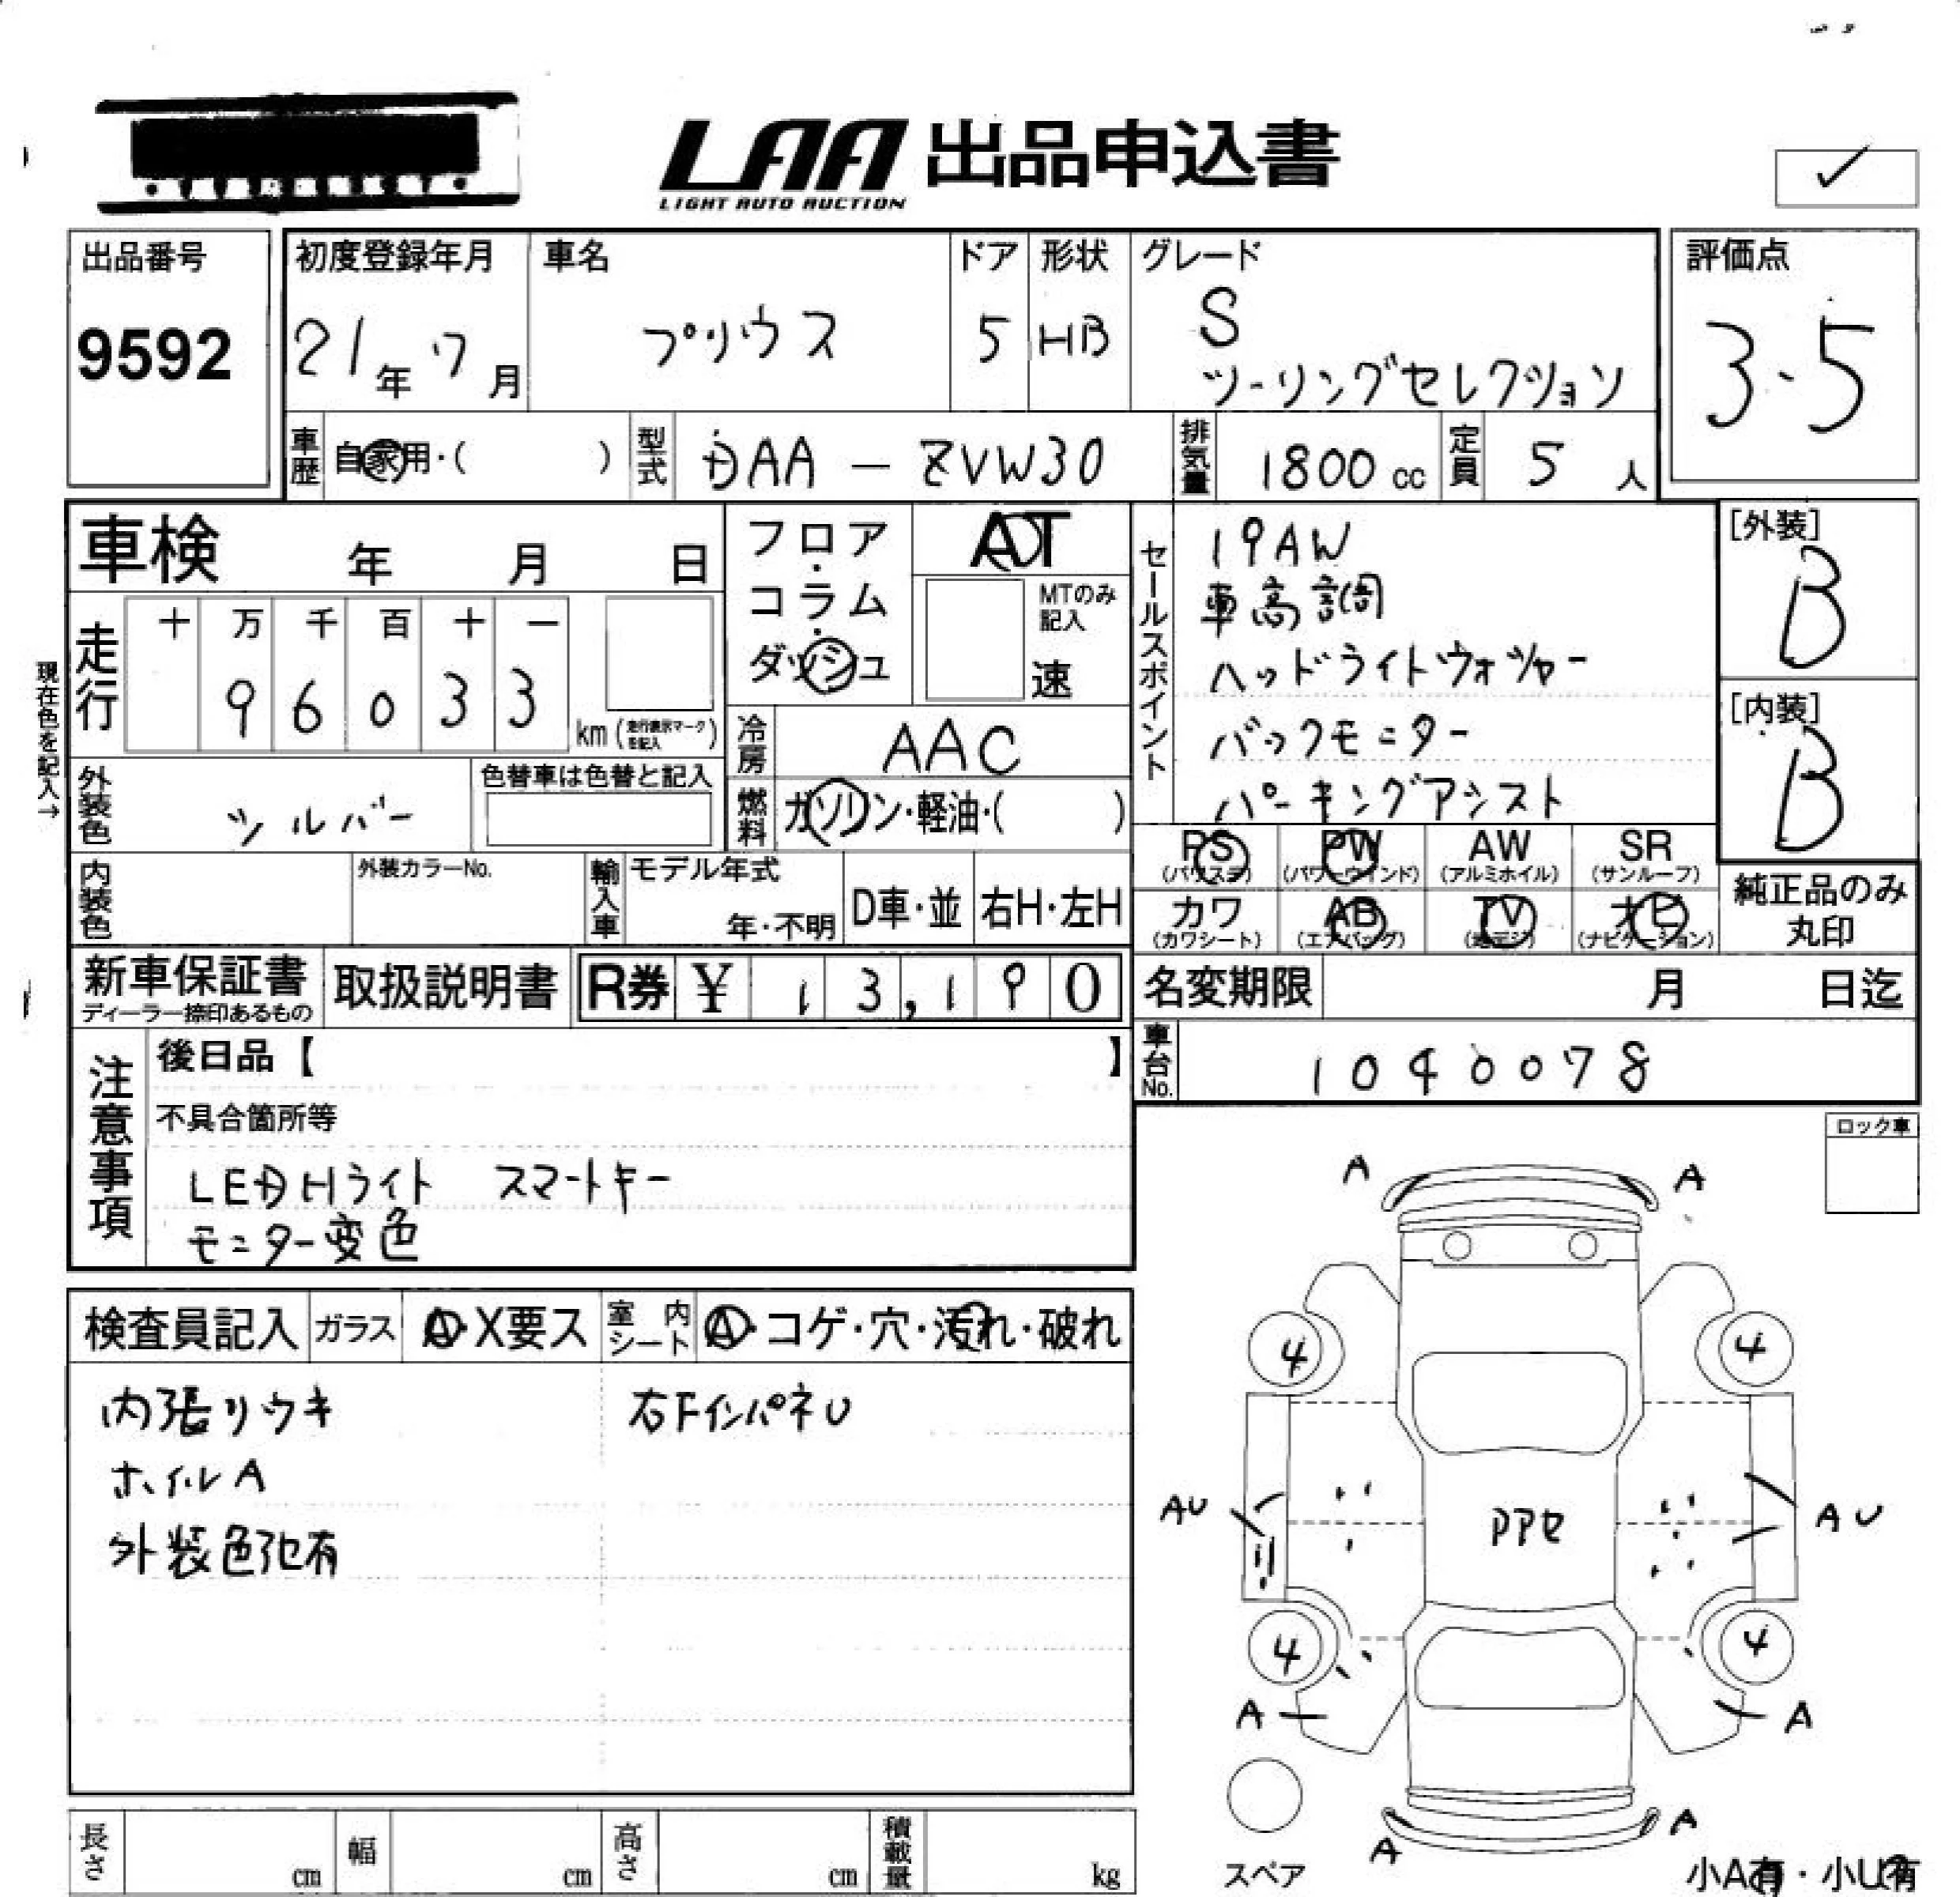 LAA 出品申込書
LIGHT AUTO AUCTION
✓
出品番号
9592
初度登録年月
21年 7月
車名
プリウス
ドア
5
形状
HB
グレード
S
ツーリングセレクション
評価点
3.5
車歴
自家用・( )
型式
DAA - ZVW30
排気量
1800 cc
定員
5 人
車検 年 月 日
フロア・
コラム・
ダッシュ
AT
MTのみ
記入
速
セールスポイント
19AW
車高調
ヘッドライトウォッシャー
バックモニター
パーキングアシスト
[外装]
B
[内装]
B
現在色を記入→
走行
十 万 千 百 十 一
9 6 0 3 3
km (走行表示マークを記入)
冷房
AAC
外装色
シルバー
色替車は色替と記入
燃料
ガソリン・軽油・( )
PS (パワステ)
PW (パワーウインド)
AW (アルミホイル)
SR (サンルーフ)
内装色
外装カラーNo.
輸入車
モデル年式
年・不明
D車・並
右H・左H
カワ (カワシート)
AB (エアバッグ)
TV (地デジ)
ナビ (ナビゲーション)
純正品のみ
丸印
新車保証書
ディーラー捺印あるもの
取扱説明書
R券 ¥ 13,190
名変期限 月 日迄
車台No.
1040078
注意事項
後日品【 】
不具合箇所等
LED Hライト スマートキー
モニター変色
ロック車
検査員記入
ガラス
A・X要ス
室内シート
A・コゲ・穴・汚れ・破れ
内張りウキ
右FインパネU
ホイルA
外装色飛有
A
A
4
4
AU
AU
4
4
A
A
A
A
スペア
小A有・小U有
長さ cm
幅 cm
高さ cm
積載量 kg